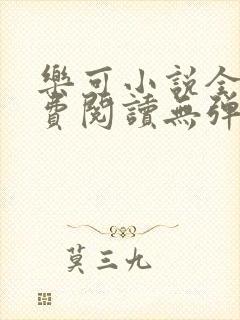 樂可小說全
費閱讀無彈
莫三九